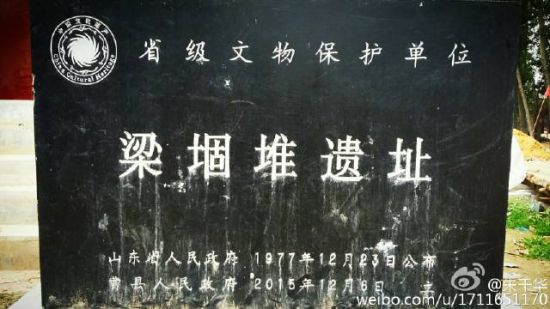 中国文化遗产
China Cultural Heritage
省级文物保护单位
梁堌堆遗址
山东省人民政府 1977年12月23日公布
曹县人民政府 2015年12月6日 立
@朱千华
weibo.com/u/1711651170